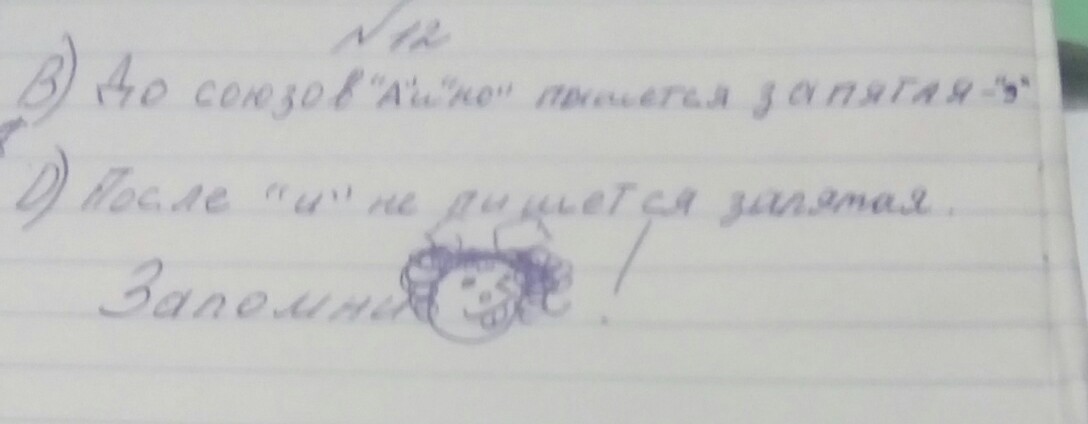 №12
В) До союзов "А" и "но" пишется запятая - ","
D) После "и" не пишется запятая.
Запомни !